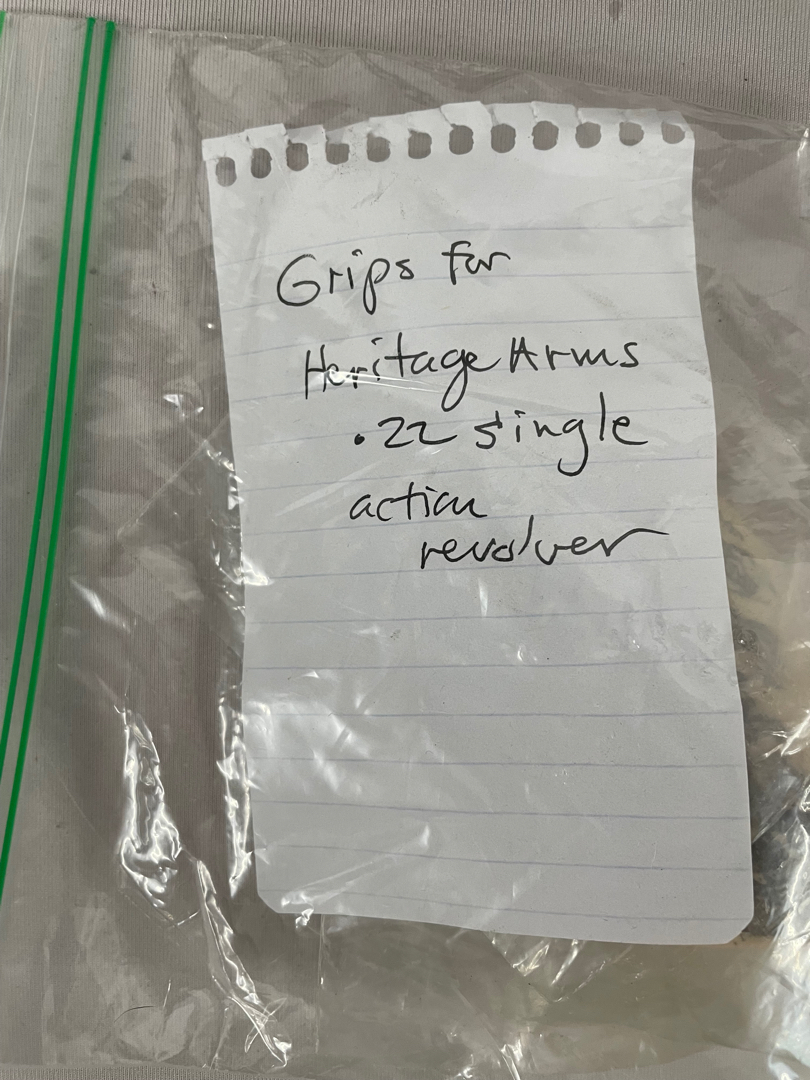 Grips for
Heritage Arms
.22 single
action
revolver